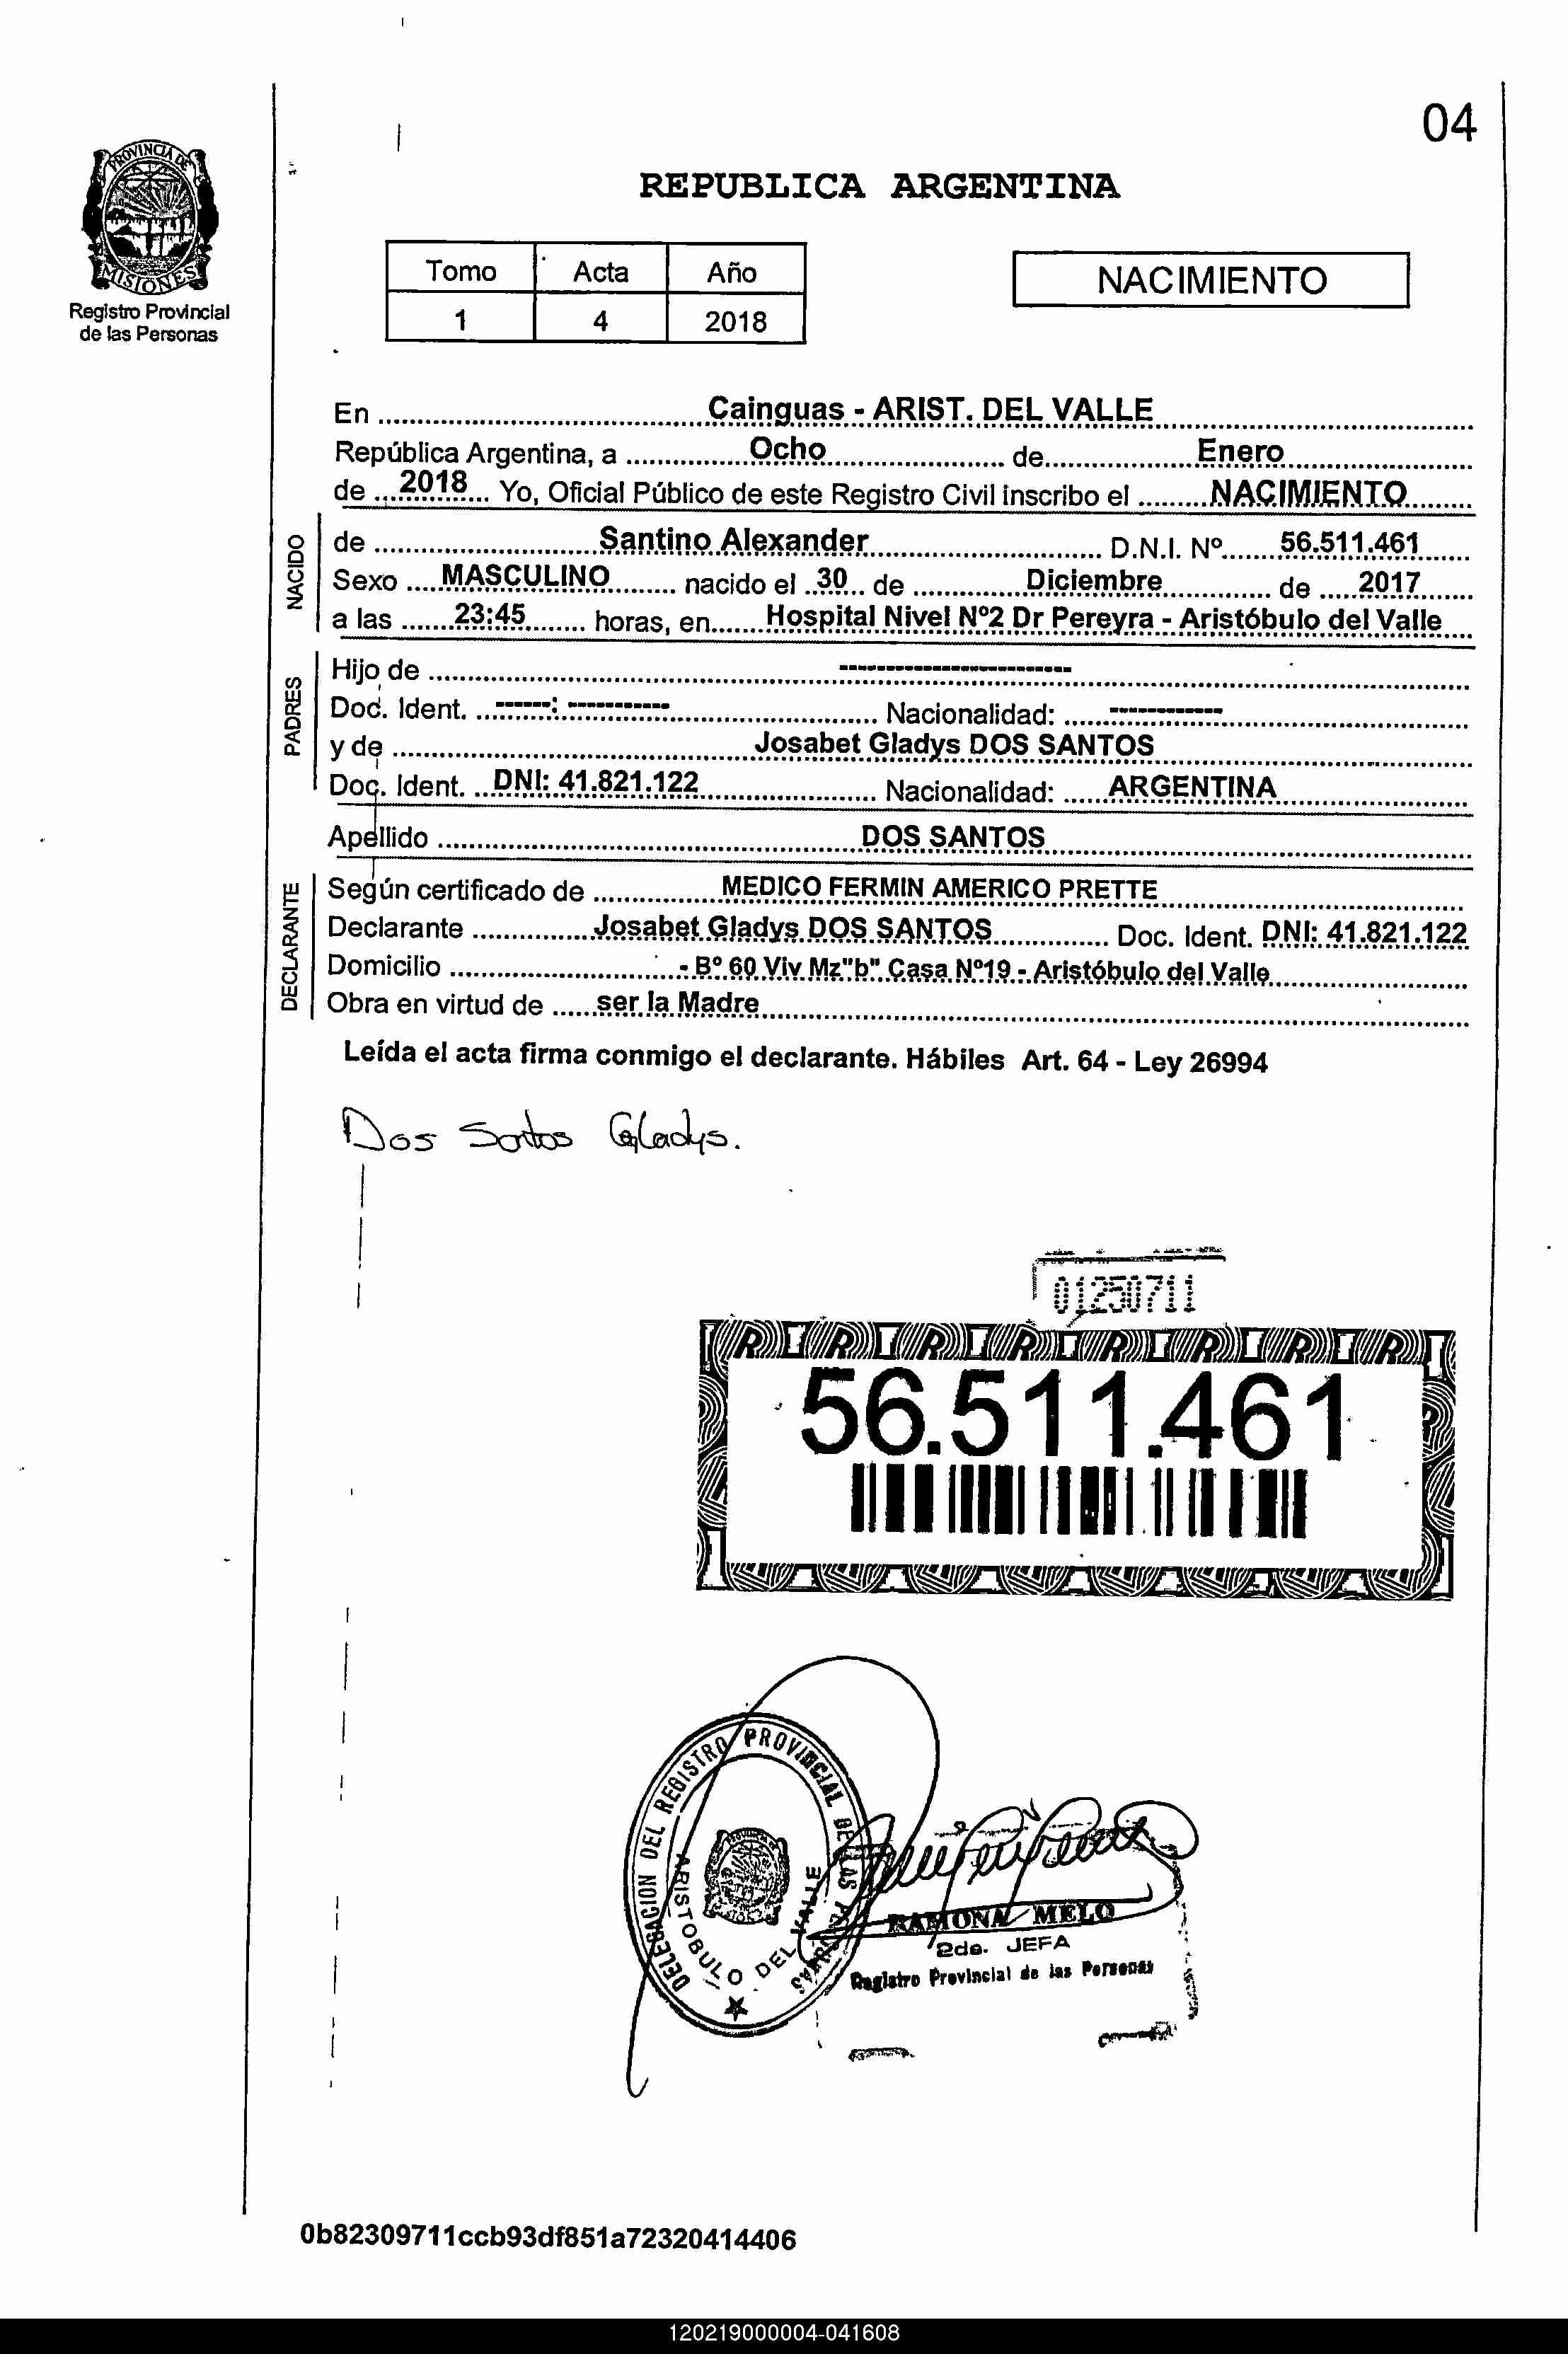 04
PROVINCIA DE
MISIONES
Registro Provincial
de las Personas
REPUBLICA ARGENTINA
Tomo Acta Año
1 4 2018
NACIMIENTO
En Cainguas - ARIST. DEL VALLE
República Argentina, a Ocho de Enero
de 2018 Yo, Oficial Público de este Registro Civil inscribo el NACIMIENTO
NACIDO
de Santino Alexander D.N.I. Nº 56.511.461
Sexo MASCULINO nacido el 30 de Diciembre de 2017
a las 23:45 horas, en Hospital Nivel Nº2 Dr Pereyra - Aristóbulo del Valle
PADRES
Hijo de ------------------------
Doc. Ident. ------: ----------- Nacionalidad: ------------
y de Josabet Gladys DOS SANTOS
Doc. Ident. DNI: 41.821.122 Nacionalidad: ARGENTINA
Apellido DOS SANTOS
DECLARANTE
Según certificado de MEDICO FERMIN AMERICO PRETTE
Declarante Josabet Gladys DOS SANTOS Doc. Ident. DNI: 41.821.122
Domicilio - Bº 60 Viv Mz"b" Casa Nº19 - Aristóbulo del Valle
Obra en virtud de ser la Madre
Leída el acta firma conmigo el declarante. Hábiles Art. 64 - Ley 26994
Dos Santos Gladys.
01250711
56.511.461
DELEGACION DEL REGISTRO PROVINCIAL DE LAS PERSONAS
ARISTOBULO DEL VALLE
RAMONA MELO
2da. JEFA
Registro Provincial de las Personas
0b82309711ccb93df851a72320414406
120219000004-041608